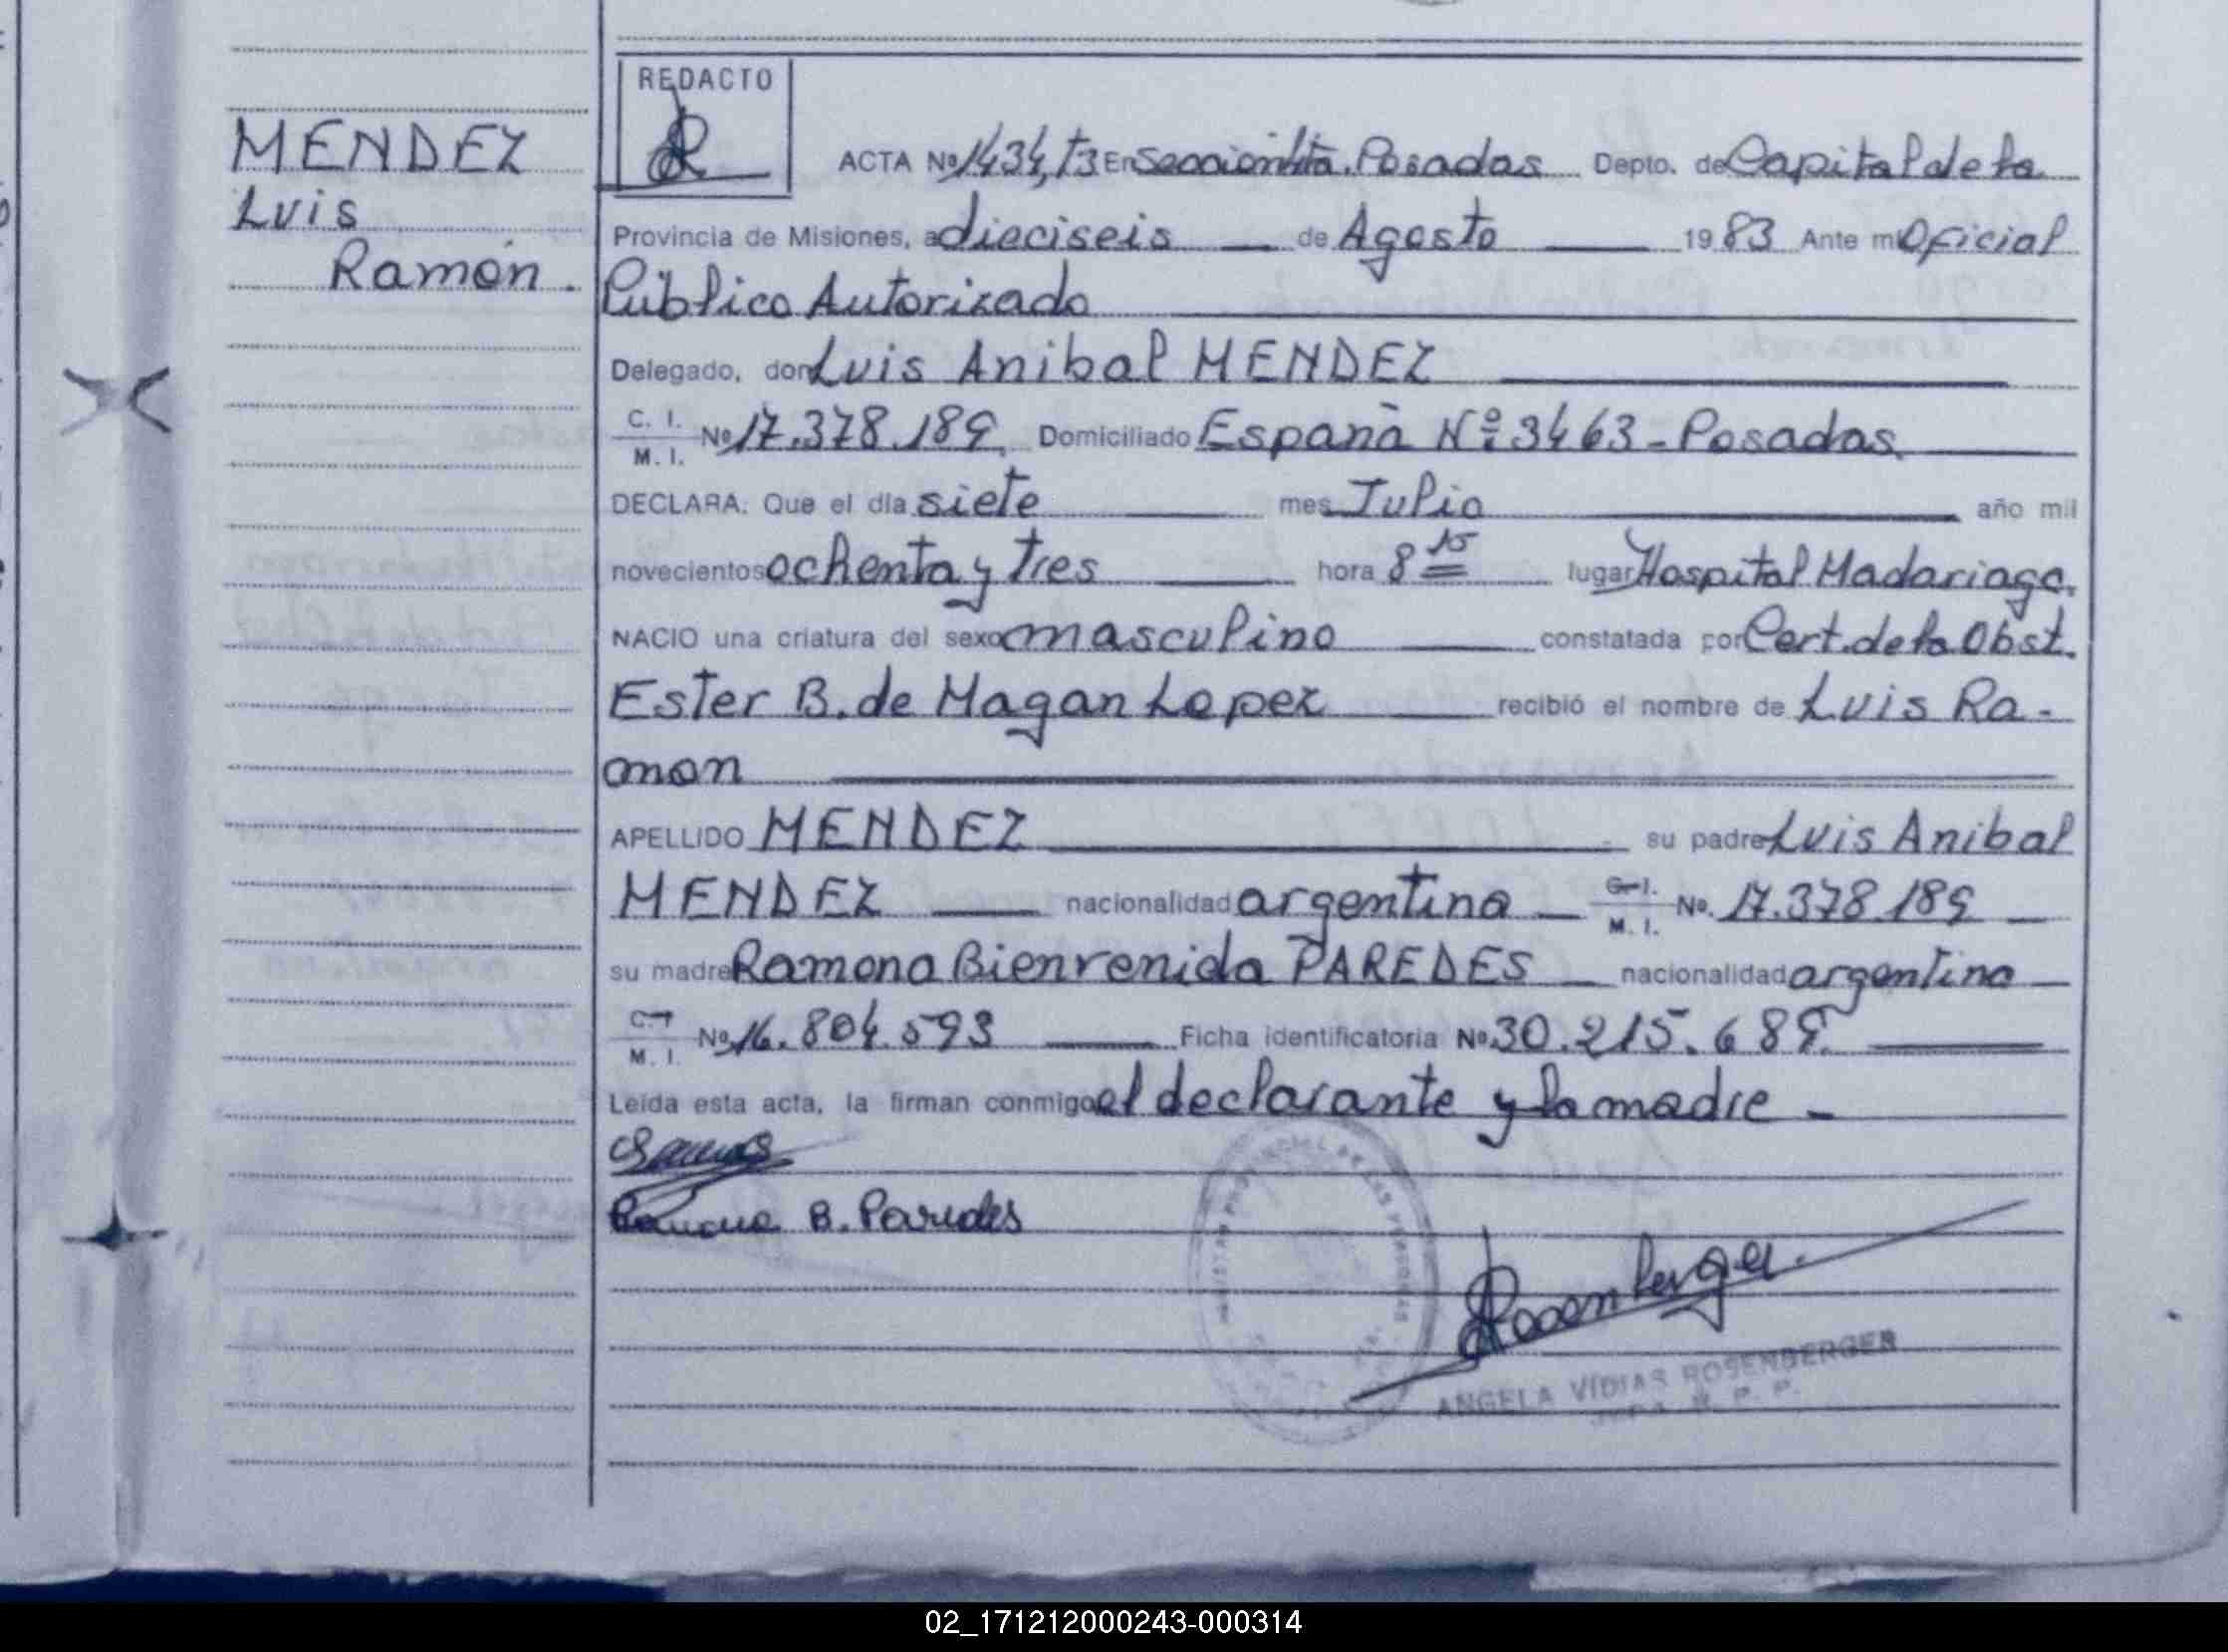 REDACTO
MENDEZ
Luis
Ramón.
ACTA Nº 1434, T3 En Sección 1ra. Posadas Depto. de Capital de la
Provincia de Misiones, a dieciseis de Agosto 1983 Ante mi Oficial
Público Autorizado
Delegado, don Luis Anibal MENDEZ
C. I.
M. I. Nº 17.378.189 Domiciliado España Nº 3463 - Posadas
DECLARA: Que el día siete mes Julio año mil
novecientos ochenta y tres hora 8 15 lugar Hospital Madariaga.
NACIO una criatura del sexo masculino constatada por Cert. de la Obst.
Ester B. de Magan Lopez recibió el nombre de Luis Ra-
mon
APELLIDO MENDEZ su padre Luis Anibal
MENDEZ nacionalidad argentina C. I. M. I. No. 17.378.189
su madre Ramona Bienvenida PAREDES nacionalidad argentina
C. I.
M. I. Nº 16.804.593 Ficha identificatoria Nº 30.215.689.
Leída esta acta, la firman conmigo el declarante y la madre -
Ramona B. Paredes
Rosenberger.
ANGELA VIDIAS ROSENBERGER
02_171212000243-000314